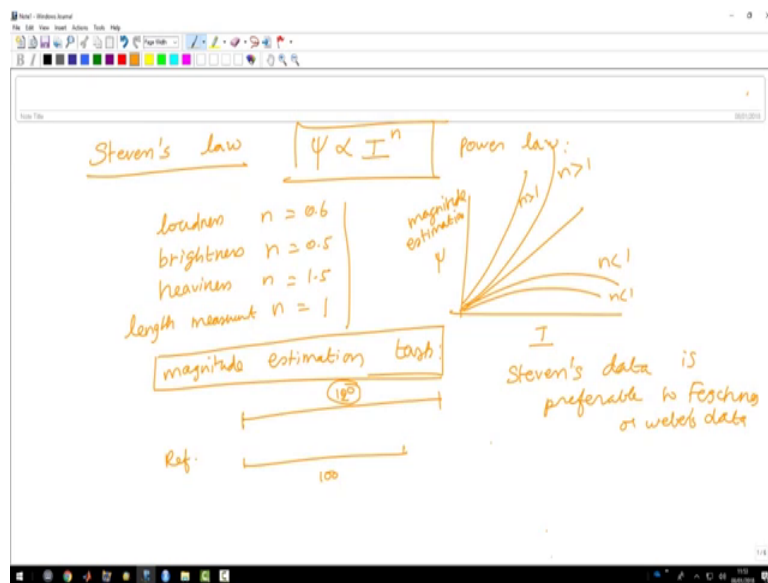 Note1 - Windows Journal
File Edit View Insert Actions Tools Help
Page Width
B I
Note Title
Steven's law Ψ ∝ I^n power law:
loudness n = 0.6
brightness n = 0.5
heaviness n = 1.5
length measumt n = 1
magnitude
estimation
Ψ
n>1
n>1
n<1
n<1
I
magnitude estimation task:
120
Ref.
100
Steven's data is
preferable to Feschner
or weber's data
1/6
11:53